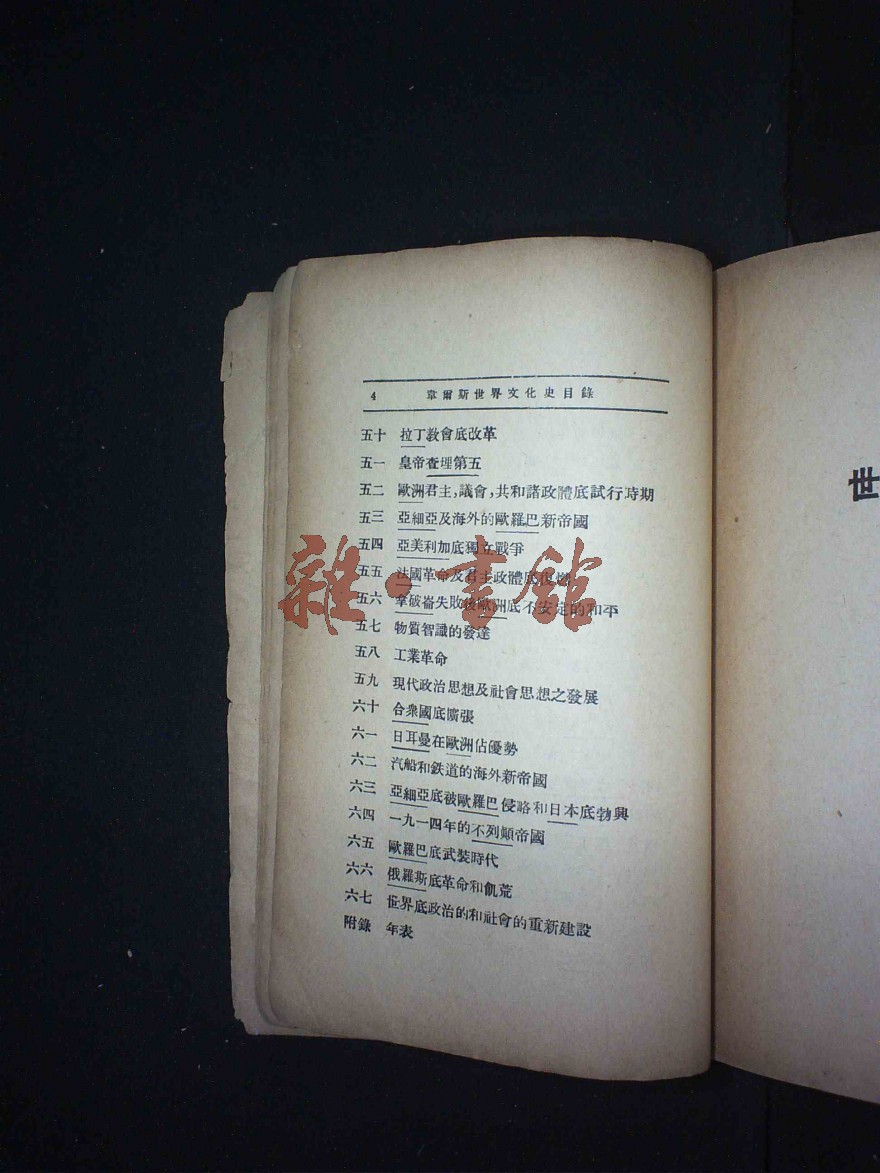 4 韋爾斯世界文化史目錄
五十 拉丁教會底改革
五一 皇帝查理第五
五二 歐洲君主，議會，共和諸政體底試行時期
五三 亞細亞及海外的歐羅巴新帝國
五四 亞美利加底獨立戰爭
五五 法國革命及君主政體底復燃
五六 拿破崙失敗後歐洲底不安定的和平
五七 物質智識的發達
五八 工業革命
五九 現代政治思想及社會思想之發展
六十 合衆國底擴張
六一 日耳曼在歐洲佔優勢
六二 汽船和鉄道的海外新帝國
六三 亞細亞底被歐羅巴侵略和日本底勃興
六四 一九一四年的不列顚帝國
六五 歐羅巴底武裝時代
六六 俄羅斯底革命和飢荒
六七 世界底政治的和社會的重新建設
附錄 年表
雜·書館